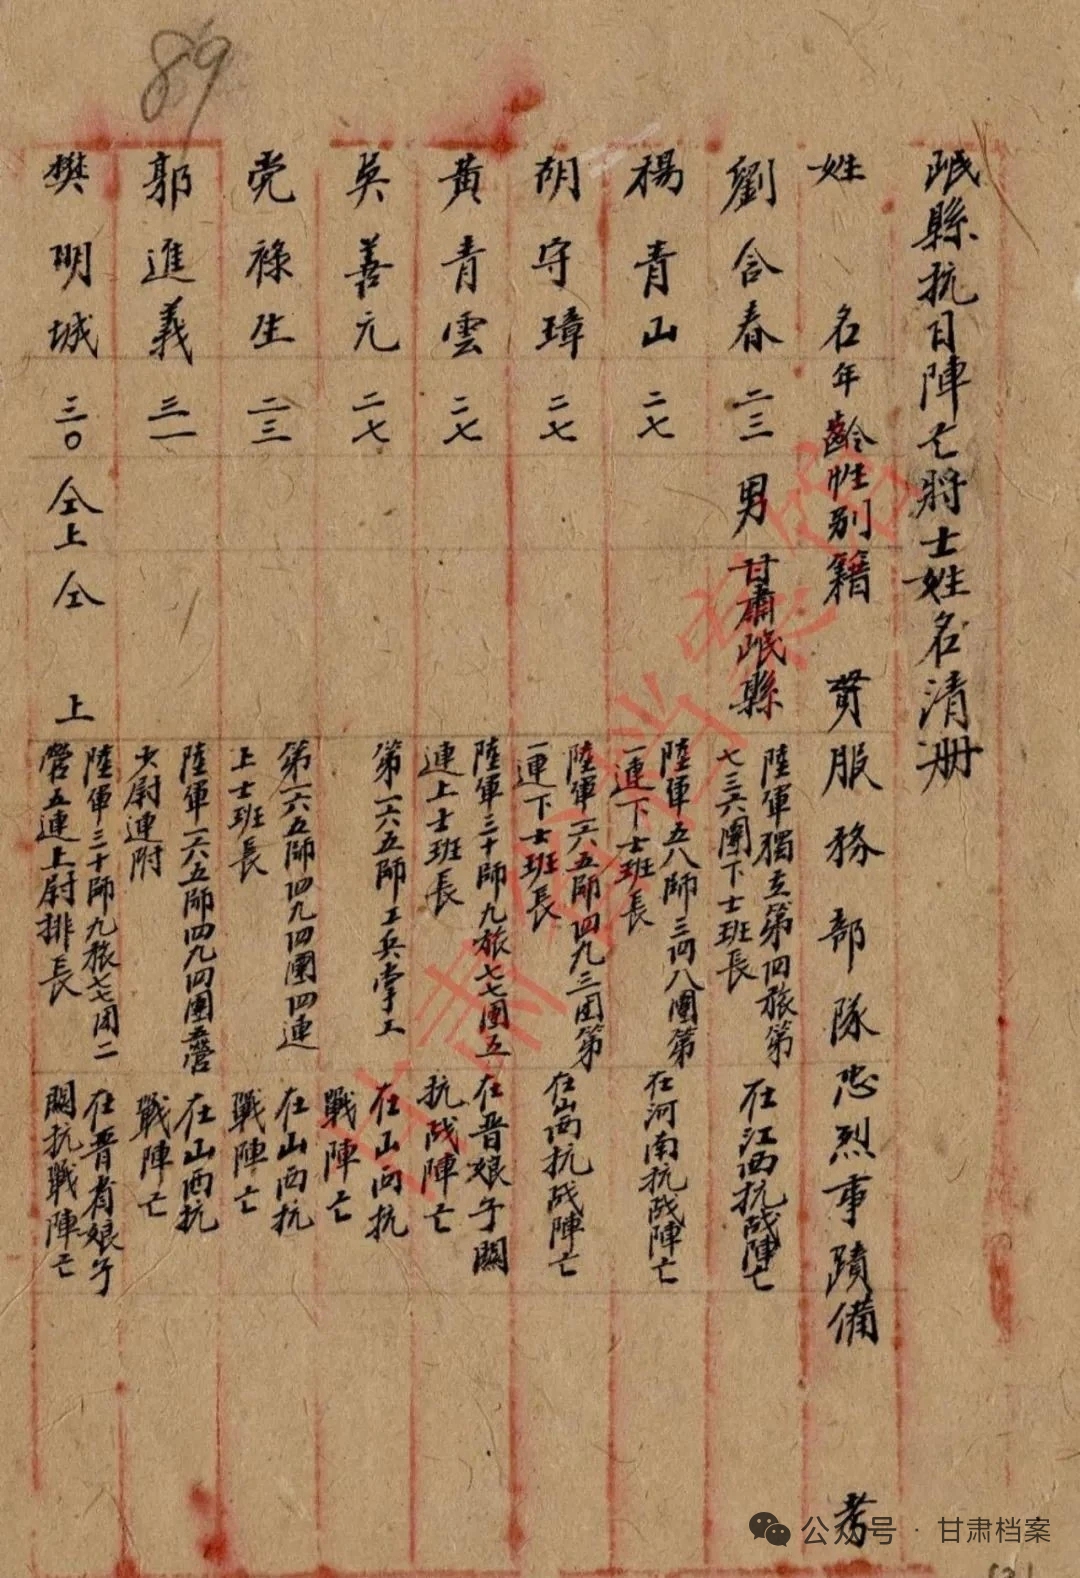 89
岷縣抗日陣亡將士姓名清册
姓名年齡性别籍貫服務部隊忠烈事蹟備考
劉含春 二三 男 甘肅岷縣 陸軍獨立第四旅第
七三六團下士班長 在江西抗战陣亡
楊青山 二七 陸軍五八師三四八團第
一連下士班長 在河南抗战陣亡
胡守璋 二七 陸軍一六五師四九三团第
一連下士班長 在山西抗战陣亡
黃青雲 二七 陸軍三十師九旅七七團五
連上士班長 在晋娘子關
抗战陣亡
吳善元 二七 第一六五師工兵掌工 在山西抗
戰陣亡
党祿生 二三 第一六五師四九四團四連
上士班長 在山西抗
戰陣亡
郭進義 三一 陸軍一六五師四九四團五營
少尉連附 在山西抗
戰陣亡
樊明城 三〇 仝上 仝上 陸軍三十師九旅七七团二
營五連上尉排長 在晋省娘子
關抗戰陣亡
甘肅省檔案館
公众号·甘肃档案